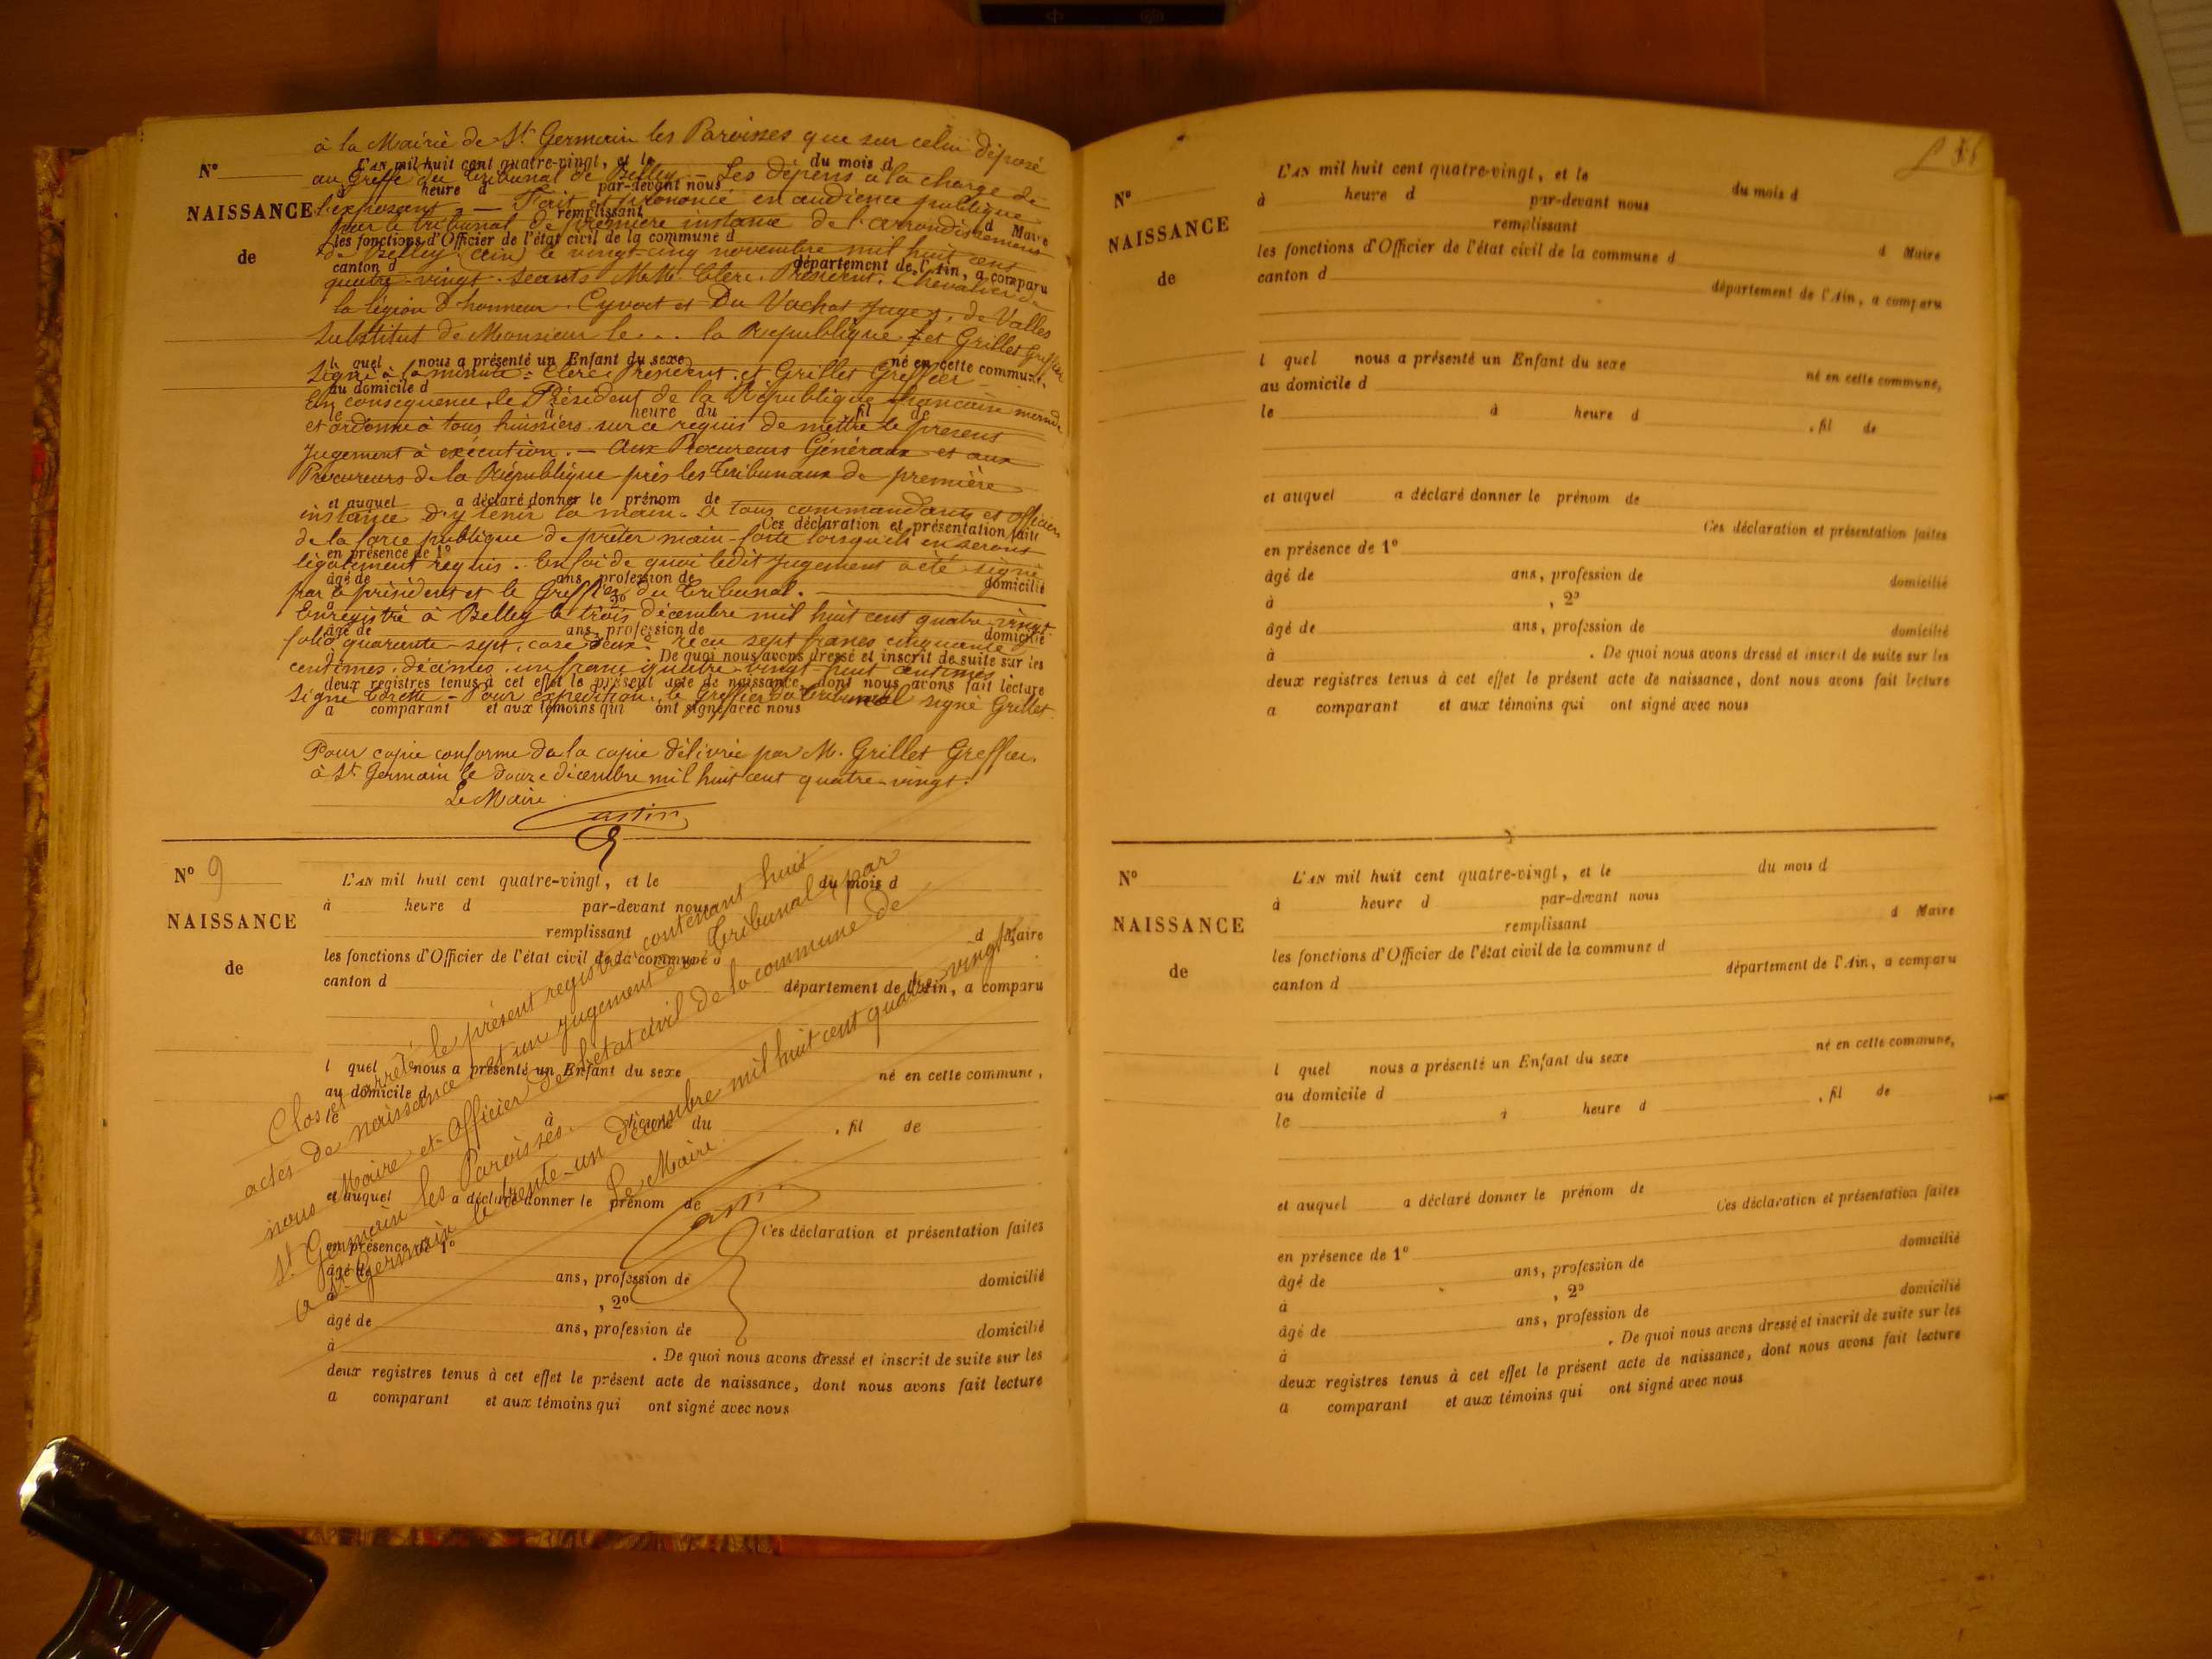 à la Mairie de St Germain les Paroisses que sur celui déposé
N°
L'AN mil huit cent quatre-vingt, et le du mois d
au Greffe du Tribunal de Belley. — Les dépens à la charge de
à heure d par-devant nous
NAISSANCE
l'exposant. — Fait et prononcé en audience publique
remplissant
par le tribunal de première instance de l'arrondissement
d Maire
les fonctions d'Officier de l'état civil de la commune d
de
de Belley (Ain) le vingt-cinq novembre mil huit cent
canton d département de l'Ain, a comparu
quatre-vingt. Séants M.M. Clerc, Président, Chevalier de
la légion d'honneur. Cyvoct et Du Vachat Juges, de Valles
Substitut de Monsieur le... la République. et Grillet Greffier
l quel nous a présenté un Enfant du sexe né en cette commune,
Signé à la minute: Clerc Président. et Grillet Greffier
au domicile d
En conséquence, le Président de la République française mande
le à heure du fil de
et ordonne à tous huissiers sur ce requis de mettre le présent
Jugement à exécution. — Aux Procureurs Généraux et aux
Procureurs de la République près les Tribunaux de première
et auquel a déclaré donner le prénom de
instance d'y tenir la main. à tous commandants et officiers
Ces déclaration et présentation faites
de la force publique de prêter main-forte lorsqu'ils en seront
en présence de 1°
légalement requis. En foi de quoi ledit jugement a été signé
âgé de ans, profession de domicilié
par le président et le Greffier du Tribunal.
à 2°
Enregistré à Belley le trois décembre mil huit cent quatre-vingt
âgé de ans, profession de domicilié
folio quarante-sept, case deux. reçu sept francs cinquante
à . De quoi nous avons dressé et inscrit de suite sur les
centimes, décimes, un franc quatre-vingt-huit centimes.
deux registres tenus à cet effet le présent acte de naissance, dont nous avons fait lecture
Signé — Pour expédition, le Greffier du Tribunal signé Grillet.
a comparant et aux témoins qui ont signé avec nous
Pour copie conforme de la copie délivrée par M. Grillet Greffier.
à St Germain le douze décembre mil huit cent quatre-vingt.
Le Maire
N° 9
L'AN mil huit cent quatre-vingt, et le du mois d
à heure d par-devant nous
NAISSANCE
remplissant
d Maire
les fonctions d'Officier de l'état civil de la commune d
de
canton d département de l'Ain, a comparu
l quel nous a présenté un Enfant du sexe né en cette commune,
au domicile d
le à heure du , fil de
et auquel a déclaré donner le prénom de
Ces déclaration et présentation faites
en présence de 1°
âgé de ans, profession de domicilié
à , 2°
âgé de ans, profession de domicilié
à . De quoi nous avons dressé et inscrit de suite sur les
deux registres tenus à cet effet le présent acte de naissance, dont nous avons fait lecture
a comparant et aux témoins qui ont signé avec nous
Clos et arrêté le présent registre contenant huit
actes de naissance et un jugement du Tribunal, par
nous Maire et Officier de l'état civil de la commune de
St Germain les Paroisses.
a St Germain le trente-un décembre mil huit cent quatre-vingt
Le Maire
N°
L'AN mil huit cent quatre-vingt, et le du mois d
à heure d par-devant nous
NAISSANCE
remplissant
d Maire
les fonctions d'Officier de l'état civil de la commune d
de
canton d département de l'Ain, a comparu
l quel nous a présenté un Enfant du sexe né en cette commune,
au domicile d
le à heure d , fil de
et auquel a déclaré donner le prénom de
Ces déclaration et présentation faites
en présence de 1°
âgé de ans, profession de domicilié
à , 2°
âgé de ans, profession de domicilié
à . De quoi nous avons dressé et inscrit de suite sur les
deux registres tenus à cet effet le présent acte de naissance, dont nous avons fait lecture
a comparant et aux témoins qui ont signé avec nous
N°
L'AN mil huit cent quatre-vingt, et le du mois d
à heure d par-devant nous
NAISSANCE
remplissant
d Maire
les fonctions d'Officier de l'état civil de la commune d
de
canton d département de l'Ain, a comparu
l quel nous a présenté un Enfant du sexe né en cette commune,
au domicile d
le à heure d , fil de
et auquel a déclaré donner le prénom de
Ces déclaration et présentation faites
en présence de 1°
âgé de ans, profession de domicilié
à , 2°
âgé de ans, profession de domicilié
à . De quoi nous avons dressé et inscrit de suite sur les
deux registres tenus à cet effet le présent acte de naissance, dont nous avons fait lecture
a comparant et aux témoins qui ont signé avec nous